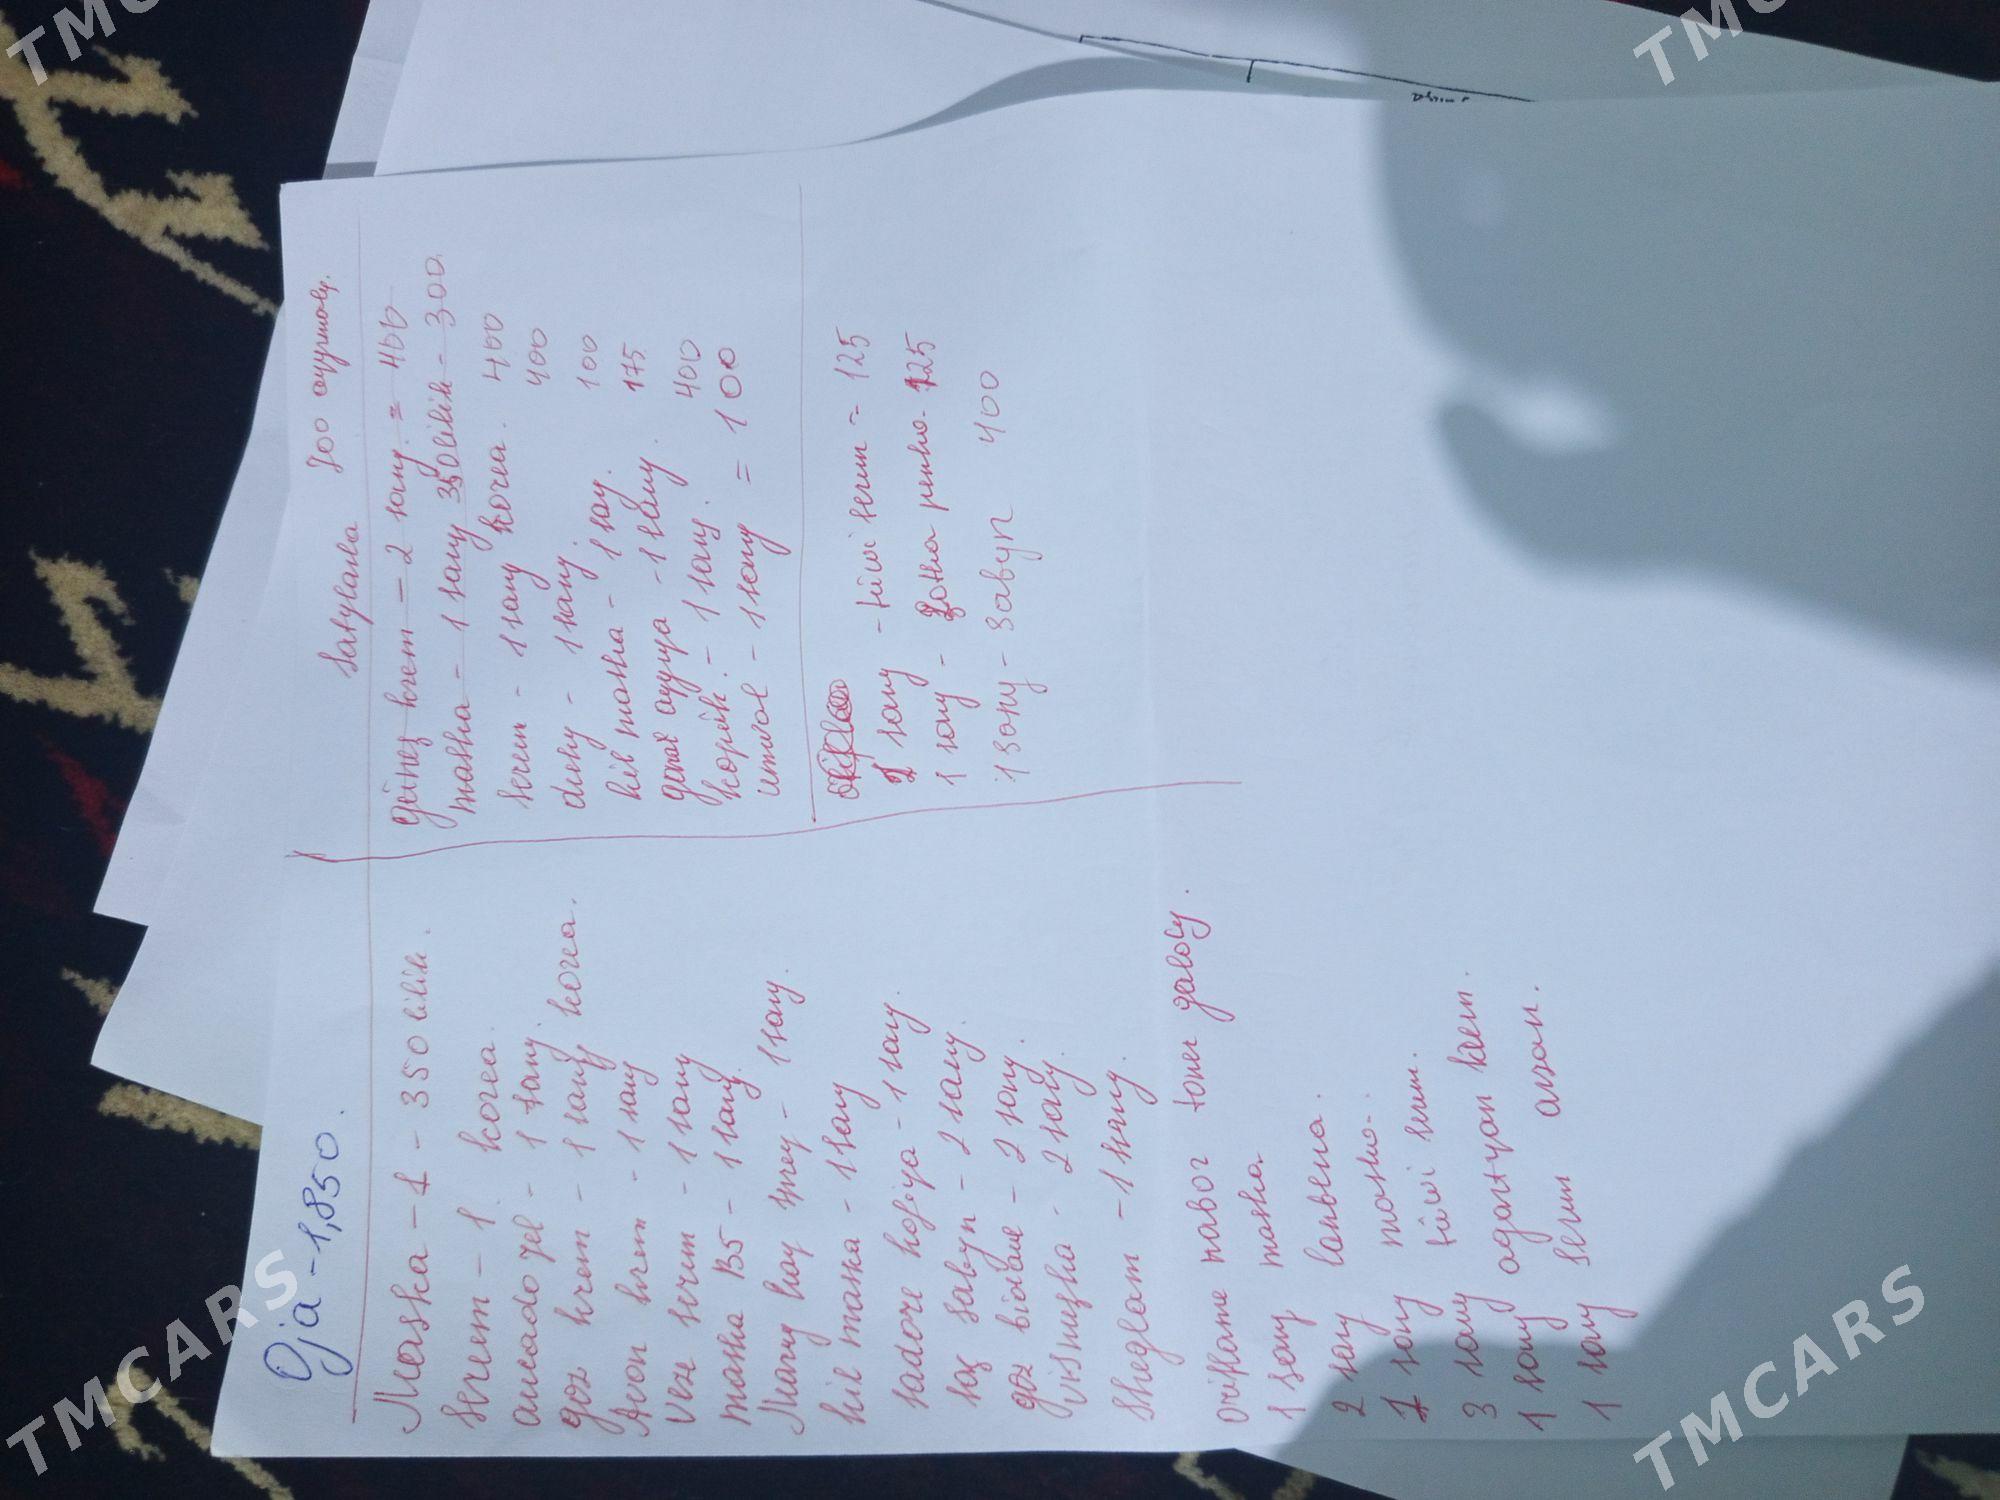 Oja - 1,850.
Maska - 1 - 350 lilik.
serum - 1 korea.
ameado gel - 1 sany.
goz krem - 1 sany korea.
Avon krem - 1 sany
Vex serum - 1 sany
maska B5 - 1 sany.
Many hay sprey - 1 sany.
hil maska - 1 sany
sadore hojiya - 1 sany.
saç sabyn - 2 sany.
goz bioture - 2 sany.
visnuska - 2 sany.
sheglam - 1 sany.
oriflame nabor toner galoly.
1 sany maska
2 sany lanbena.
1 sany maska.
3 sany tüwi serum.
1 sany agartyan krem.
1 sany serum arzan.
satylanla 300 ayyrmaly.
güneş krem - 2 sany = 400
maska - 1 sany 350 lilik - 300.
serum - 1 sany korea. 400
duhy - 1 sany. 400
hil maska - 1 sany. 100
genal agyrya - 1 sany. 175
kopik. - 1 sany. 400
umwal - 1 sany = 100
1 sany - tüwi serum = 125
1 sany - zotka penka - 125
1 sany - sabyn 400
TMCARS
TMCARS
TMCARS
TMCARS